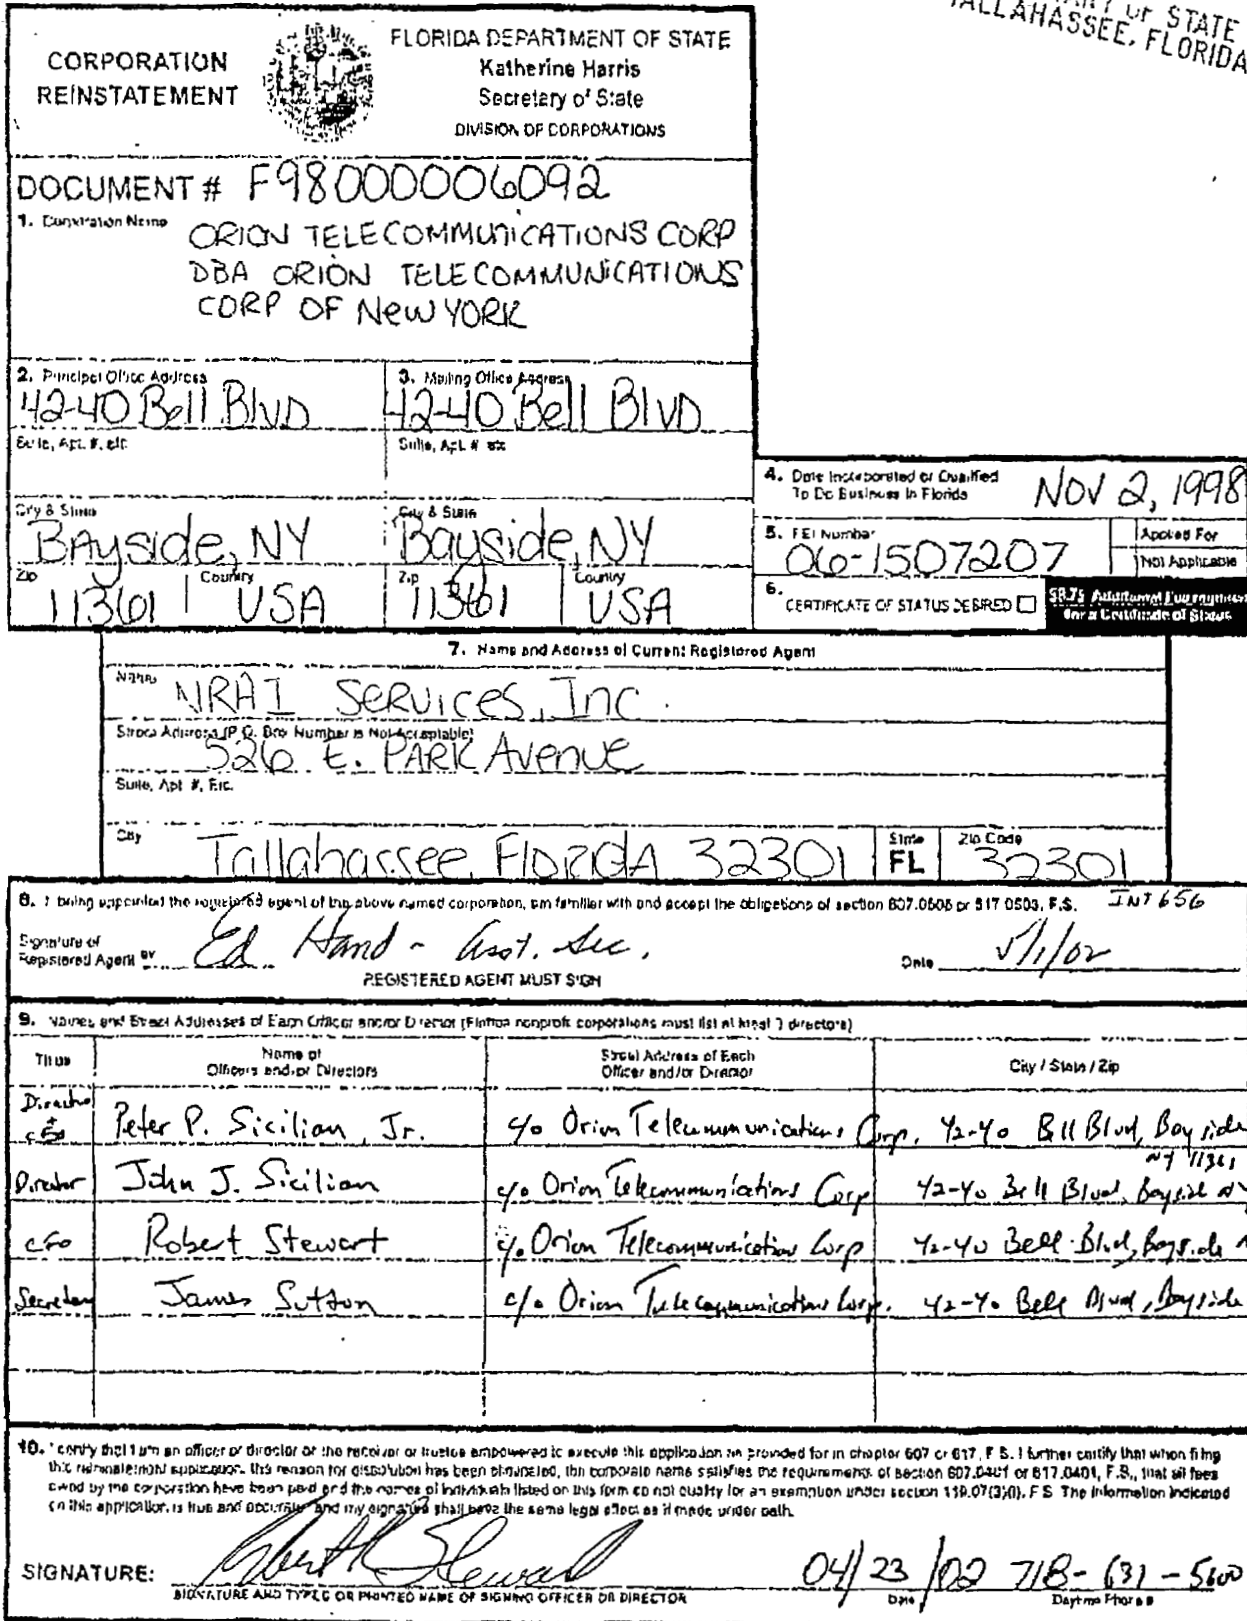 STATE
TALLAHASSEE, FLORIDA
CORPORATION
REINSTATEMENT
FLORIDA DEPARTMENT OF STATE
Katherine Harris
Secretary of State
DIVISION OF CORPORATIONS
DOCUMENT # F98000006092
1. Corporation Name
ORION TELECOMMUNICATIONS CORP
DBA ORION TELECOMMUNICATIONS
CORP OF New YORK
2. Principal Office Address
42-40 Bell BlvD
Suite, Apt. #, etc
City & State
BAySide, NY
Zip 11361 Country USA
3. Mailing Office Address
42-40 Bell BlvD
Suite, Apt. # etc
City & State
Bayside, NY
Zip 11361 Country USA
4. Date Incorporated or Qualified
To Do Business In Florida
NOV 2, 1998
5. FEI Number
06-1507207
Applied For
Not Applicable
6. CERTIFICATE OF STATUS DESIRED
$8.75 Additional Fee required
for a Certificate of Status
7. Name and Address of Current Registered Agent
Name
NRAI Services, Inc.
Street Address (P.O. Box Number is Not Acceptable)
526 E. PARK Avenue
Suite, Apt #, Etc.
City Tallahassee, FlORIDA 32301 State FL Zip Code 32301
8. I being appointed the registered agent of the above named corporation, am familiar with and accept the obligations of section 607.0505 or 617.0503, F.S.
INT 656
Signature of
Registered Agent BY Ed Hand - Asst. Sec. Date 5/1/02
REGISTERED AGENT MUST SIGN
9. Names and Street Addresses of Each Officer and/or Director (Florida nonprofit corporations must list at least 3 directors)
Title Name of Officers and/or Directors Street Address of Each Officer and/or Director City / State / Zip
Director + CEO Peter P. Sicilian, Jr. c/o Orion Telecommunications Corp. 42-40 Bell Blvd, Bayside
NY 11361
Director John J. Sicilian c/o Orion Telecommunications Corp 42-40 Bell Blvd, Bayside NY
CFO Robert Stewart c/o Orion Telecommunications Corp 42-40 Bell Blvd, Bayside
Secretary James Sutton c/o Orion Telecommunications Corp. 42-40 Bell Blvd, Bayside
10. I certify that I am an officer or director or the receiver or trustee empowered to execute this application as provided for in chapter 607 or 617, F.S. I further certify that when filing
this reinstatement application, the reason for dissolution has been eliminated, the corporate name satisfies the requirements of section 607.0401 or 617.0401, F.S., that all fees
owed by the corporation have been paid and the names of individuals listed on this form do not qualify for an exemption under section 119.07(3)(i), F.S. The information indicated
on this application is true and accurate and my signature shall have the same legal effect as if made under oath.
SIGNATURE: Robert Stewart 04/23/02 718-631-5600
SIGNATURE AND TYPED OR PRINTED NAME OF SIGNING OFFICER OR DIRECTOR Date Daytime Phone #